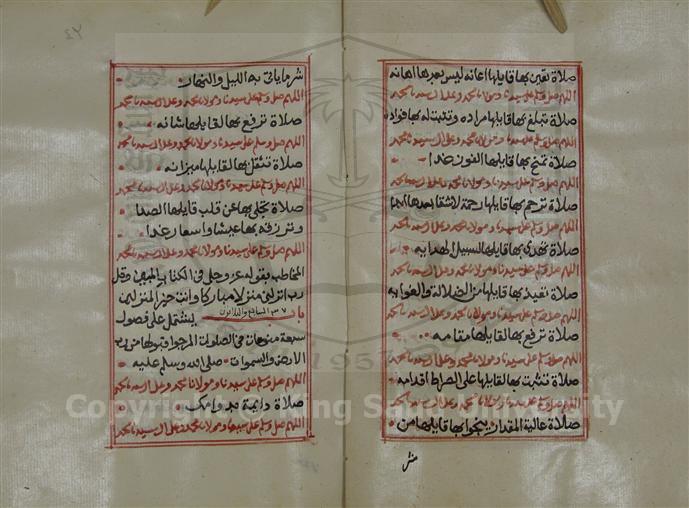 صلاة تعين بها قايلها اعانة ليس بعدها اهانه
اللهم صل وسلم على سيدنا ومولانا محمد وعلى ال سيدنا محمد
صلاة تبلغ بها قايلها مراده وتثبت له بها فواده
اللهم صل وسلم على سيدنا ومولانا محمد وعلى ال سيدنا محمد
صلاة تمنح بها قايلها الفوز غدا
اللهم صل وسلم على سيدنا ومولانا محمد وعلى ال سيدنا محمد
صلاة ترحم بها قايلها رحمة لا شقا بعدها ابدا
اللهم صل وسلم على سيدنا ومولانا محمد وعلى ال سيدنا محمد
صلاة تهدي بها قايلها السبيل الهدايه
اللهم صل وسلم على سيدنا ومولانا محمد وعلى ال سيدنا محمد
صلاة تعيذ بها قايلها من الضلالة والغوايه
اللهم صل وسلم على سيدنا ومولانا محمد وعلى ال سيدنا محمد
صلاة ترفع بها لقايلها مقامه
اللهم صل وسلم على سيدنا ومولانا محمد وعلى ال سيدنا محمد
صلاة تثبت بها لقايلها على الصراط اقدامه
اللهم صل وسلم على سيدنا ومولانا محمد وعلى ال سيدنا محمد
صلاة عالية المقدار ينجوا بها قايلها من
شر
شر ما ياتي به الليل والنهار
اللهم صل وسلم على سيدنا ومولانا محمد وعلى ال سيدنا محمد
صلاة ترفع بها لقايلها شانه
اللهم صل وسلم على سيدنا ومولانا محمد وعلى ال سيدنا محمد
صلاة تثقل بها لقايلها ميزانه
اللهم صل وسلم على سيدنا ومولانا محمد وعلى ال سيدنا محمد
صلاة تجلي بها عن قلب قايلها الصدا
وترزقه بها عيشا واسعا رغدا
اللهم صل وسلم على سيدنا ومولانا محمد وعلى ال سيدنا محمد
المخاطب بقوله عز وجل في الكتاب المبين وقل
رب انزلني منزلا مباركا وانت خير المنزلين
باب ٣٧ السابع والثلاثون يشتمل على فصول
سبعة منوعات في الصلوات المرجو قبولها من رب
الارض والسموات صلى الله وسلم عليه
اللهم صل وسلم على سيدنا ومولانا محمد وعلى ال سيدنا محمد
صلاة دايمة بدوامك
اللهم صل وسلم على سيدنا ومولانا محمد وعلى ال سيدنا محمد
Copyright © King Saud University
1957